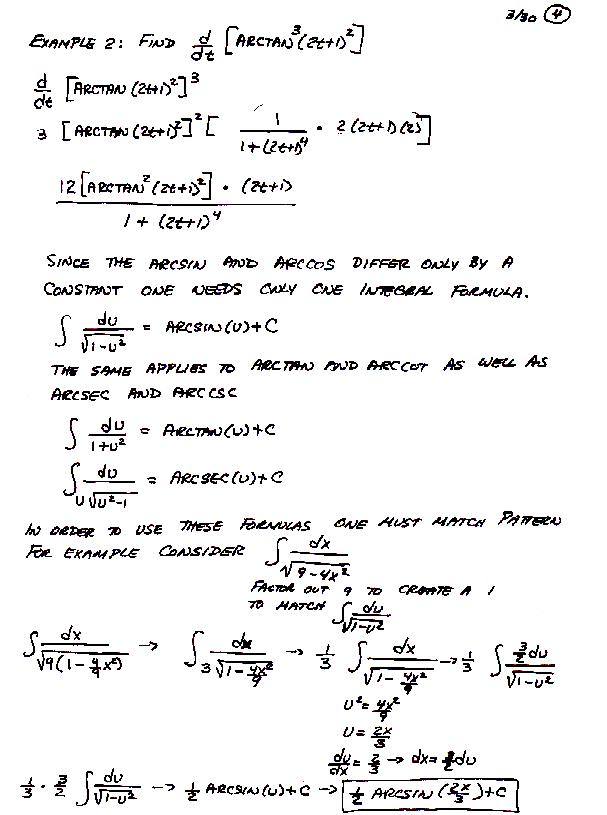 3/30 4
EXAMPLE 2: FIND d/dt [ARCTAN³(2t+1)²]
d/dt [ARCTAN (2t+1)²]³
3 [ARCTAN (2t+1)²]² [ 1/(1+(2t+1)⁴) · 2(2t+1)(2)]
12[ARCTAN²(2t+1)²] · (2t+1)
1 + (2t+1)⁴
SINCE THE ARCSIN AND ARCCOS DIFFER ONLY BY A
CONSTANT ONE NEEDS ONLY ONE INTEGRAL FORMULA.
∫ du/√(1-u²) = ARCSIN(u)+C
THE SAME APPLIES TO ARCTAN AND ARCCOT AS WELL AS
ARCSEC AND ARCCSC
∫ du/(1+u²) = ARCTAN(u)+C
∫ du/(u√(u²-1)) = ARCSEC(u)+C
IN ORDER TO USE THESE FORMULAS ONE MUST MATCH PATTERN
FOR EXAMPLE CONSIDER ∫ dx/√(9-4x²)
FACTOR OUT 9 TO CREATE A 1
TO MATCH ∫ du/√(1-u²)
∫ dx/√(9(1-4/9 x²)) → ∫ dx/(3√(1-4x²/9)) → 1/3 ∫ dx/√(1-4x²/9) → 1/3 ∫ (3/2 du)/√(1-u²)
u² = 4x²/9
u = 2x/3
du/dx = 2/3 → dx = 3/2 du
1/3 · 3/2 ∫ du/√(1-u²) → 1/2 ARCSIN(u)+C → 1/2 ARCSIN(2x/3)+C